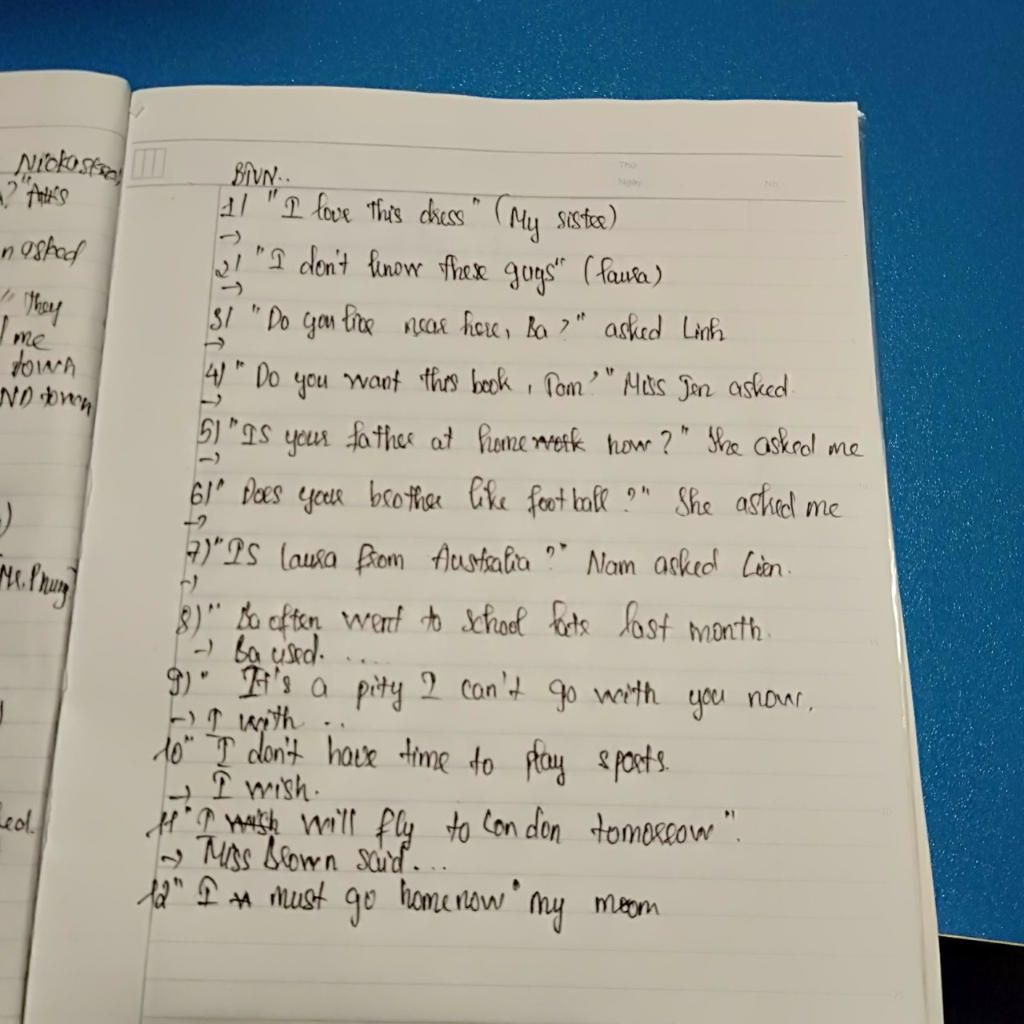 Nickasked
? "
n asked
" They
me
town
ND town
Mr. Phung
ked.
BTVN..
Thứ
Ngày
No.
1/ "I love this dress" (My sister)
→
2/ "I don't know these guys" (laura)
→
3/ "Do you live near here, Ba?" asked Linh
→
4) "Do you want this book, Tom?" Miss Jen asked.
→
5) "IS your father at home work now?" She asked me
→
6) " Does your brother like foot ball?" She asked me
→
7) "IS laura from Australia?" Nam asked Lien.
→
8) " Ba often went to school late last month.
→ Ba used. ....
9) " It's a pity I can't go with you now.
→ I with ..
10" I don't have time to play sports.
→ I wish.
11" I wish will fly to London tomorrow".
→ Miss Brown said...
12" I must go home now" my moom